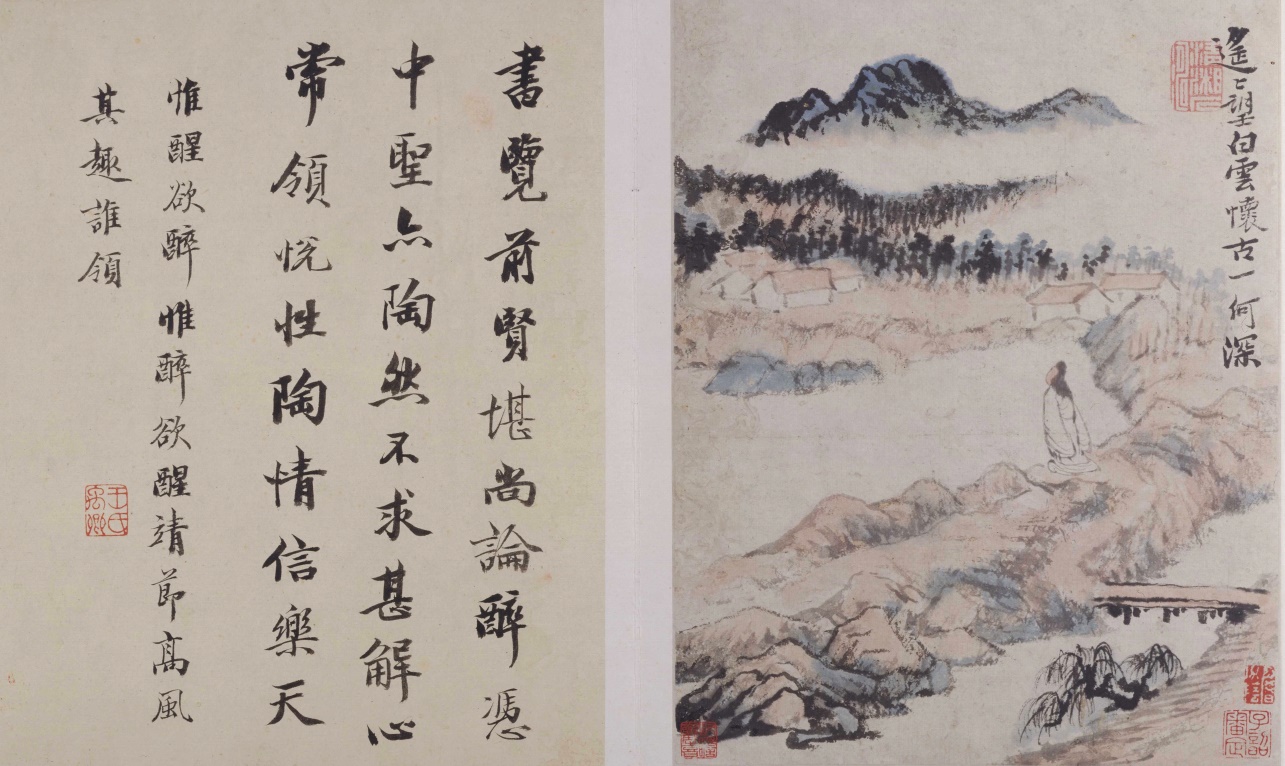 遙〻望白雲懷古一何深
書覽前賢堪尚論醉憑
中聖亦陶然不求甚解心
常領悅性陶情信樂天
惟醒欲醉惟醉欲醒靖節髙風
其趣誰領
王氏禹卿